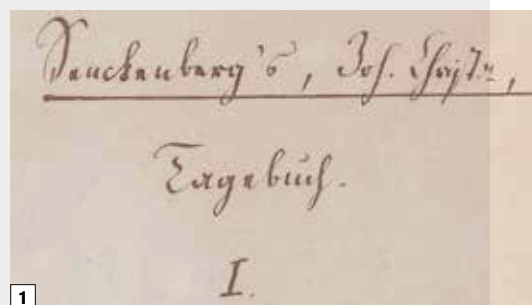 Senckenberg's, Joh. Christn,
Tagebuch.
I.
1